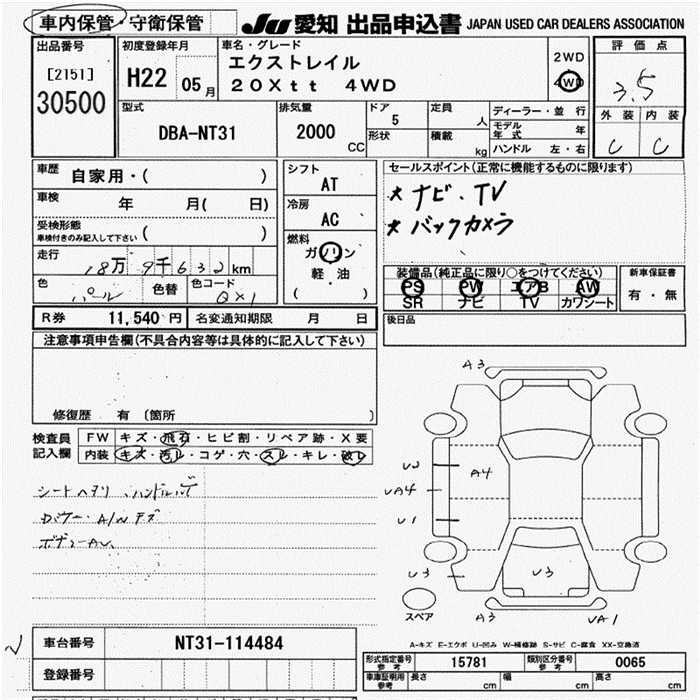 車内保管・守衛保管 JU 愛知 出品申込書 JAPAN USED CAR DEALERS ASSOCIATION
出品番号
[2151]
30500
初度登録年月
H22 05月
車名・グレード
エクストレイル
20Xtt 4WD
2WD
4WD
評価点
3.5
外装 内装
C C
型式
DBA-NT31
排気量
2000 CC
ドア
5
形状
定員 人
積載 kg
ディーラー・並行
モデル年式 年
ハンドル 左・右
車歴 自家用・( )
車検 年 月( 日)
受検形態
車検付きのみ記入して下さい ( )
走行 18万9千632km
色 パール 色替 色コード QX1
シフト
AT
冷房
AC
燃料
ガソリン
軽・油
( )
セールスポイント(正常に機能するものに限ります)
★ナビ・TV
★バックカメラ
装備品(純正品に限り○をつけてください)
PS PW エアB AW
SR ナビ TV カワシート
新車保証書
有・無
後日品
R券 11,540円 名変通知期限 月 日
注意事項申告欄(不具合内容等は具体的に記入して下さい)
修復歴 有 〔箇所 〕
検査員記入欄
FW キズ・飛石・ヒビ割・リペア跡・X要
内装 キズ・汚レ・コゲ・穴・スレ・キレ・破レ
A3
U2
UA4
A4
U1
U3
U3
スペア
A3
UA1
A-キズ E-エクボ U-凹み W-補修跡 S-サビ C-腐食 XX-交換済
車台番号 NT31-114484
登録番号
形式指定番号 参考 15781 類別区分番号 参考 0065
車庫証明用 参考 長さ cm 幅 cm 高さ cm